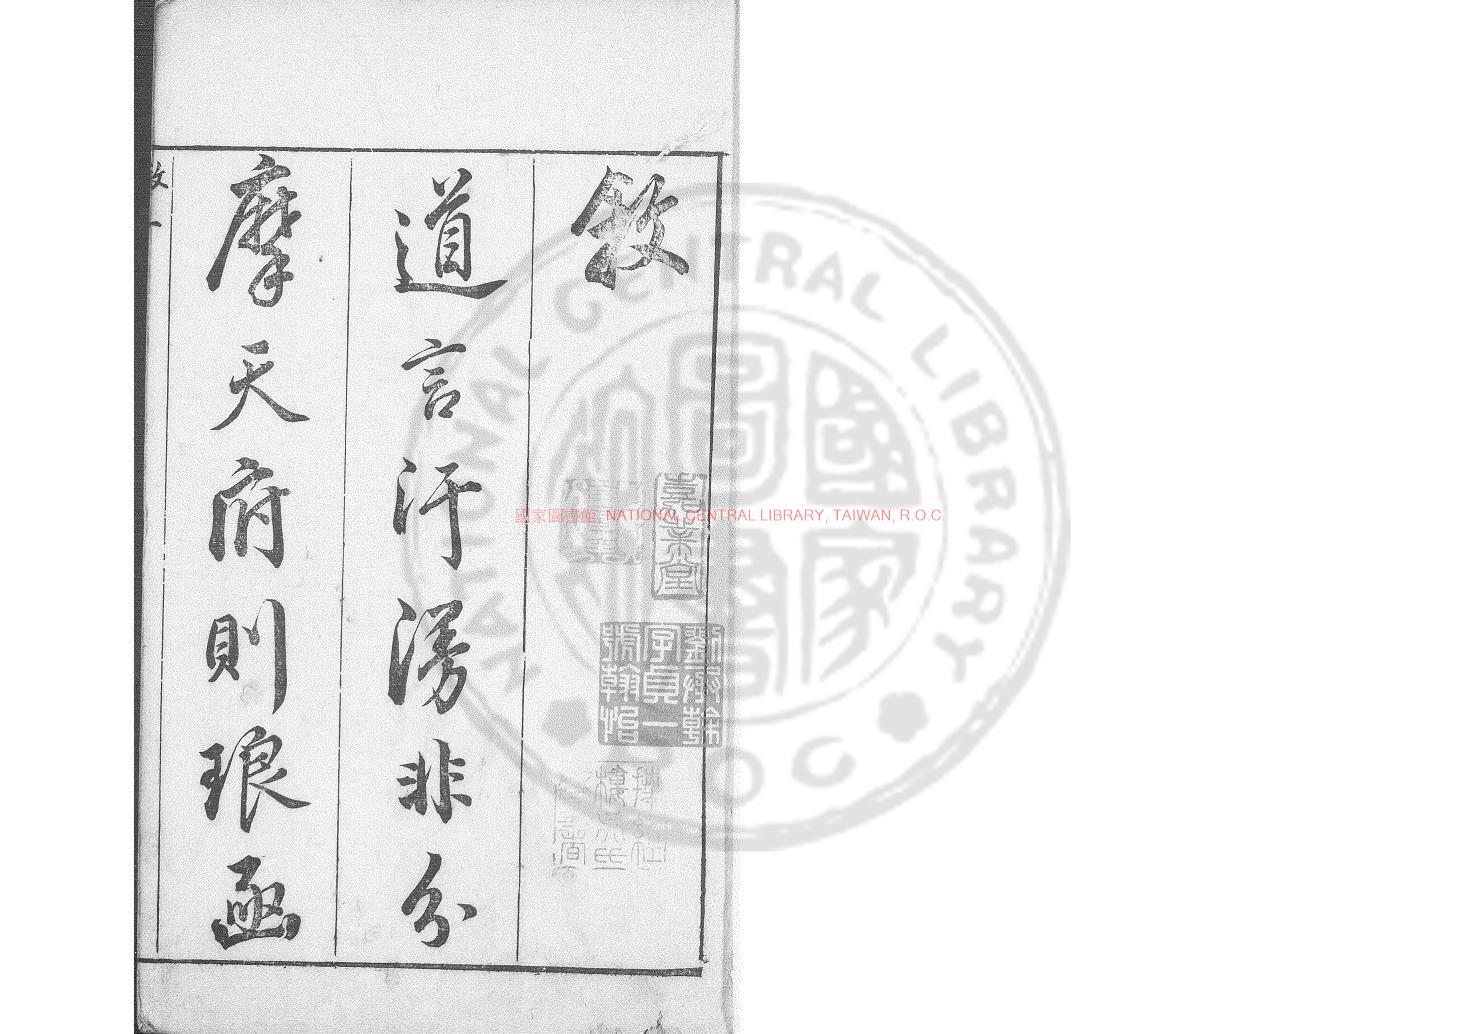 敘
道言汗漫非分
摩天府則琅函
敘 一
嘉業堂
劉承幹
字貞一
號翰怡
國家圖書館, NATIONAL CENTRAL LIBRARY, TAIWAN, R.O.C.
NATIONAL CENTRAL LIBRARY
R.O.C.
國家圖書館